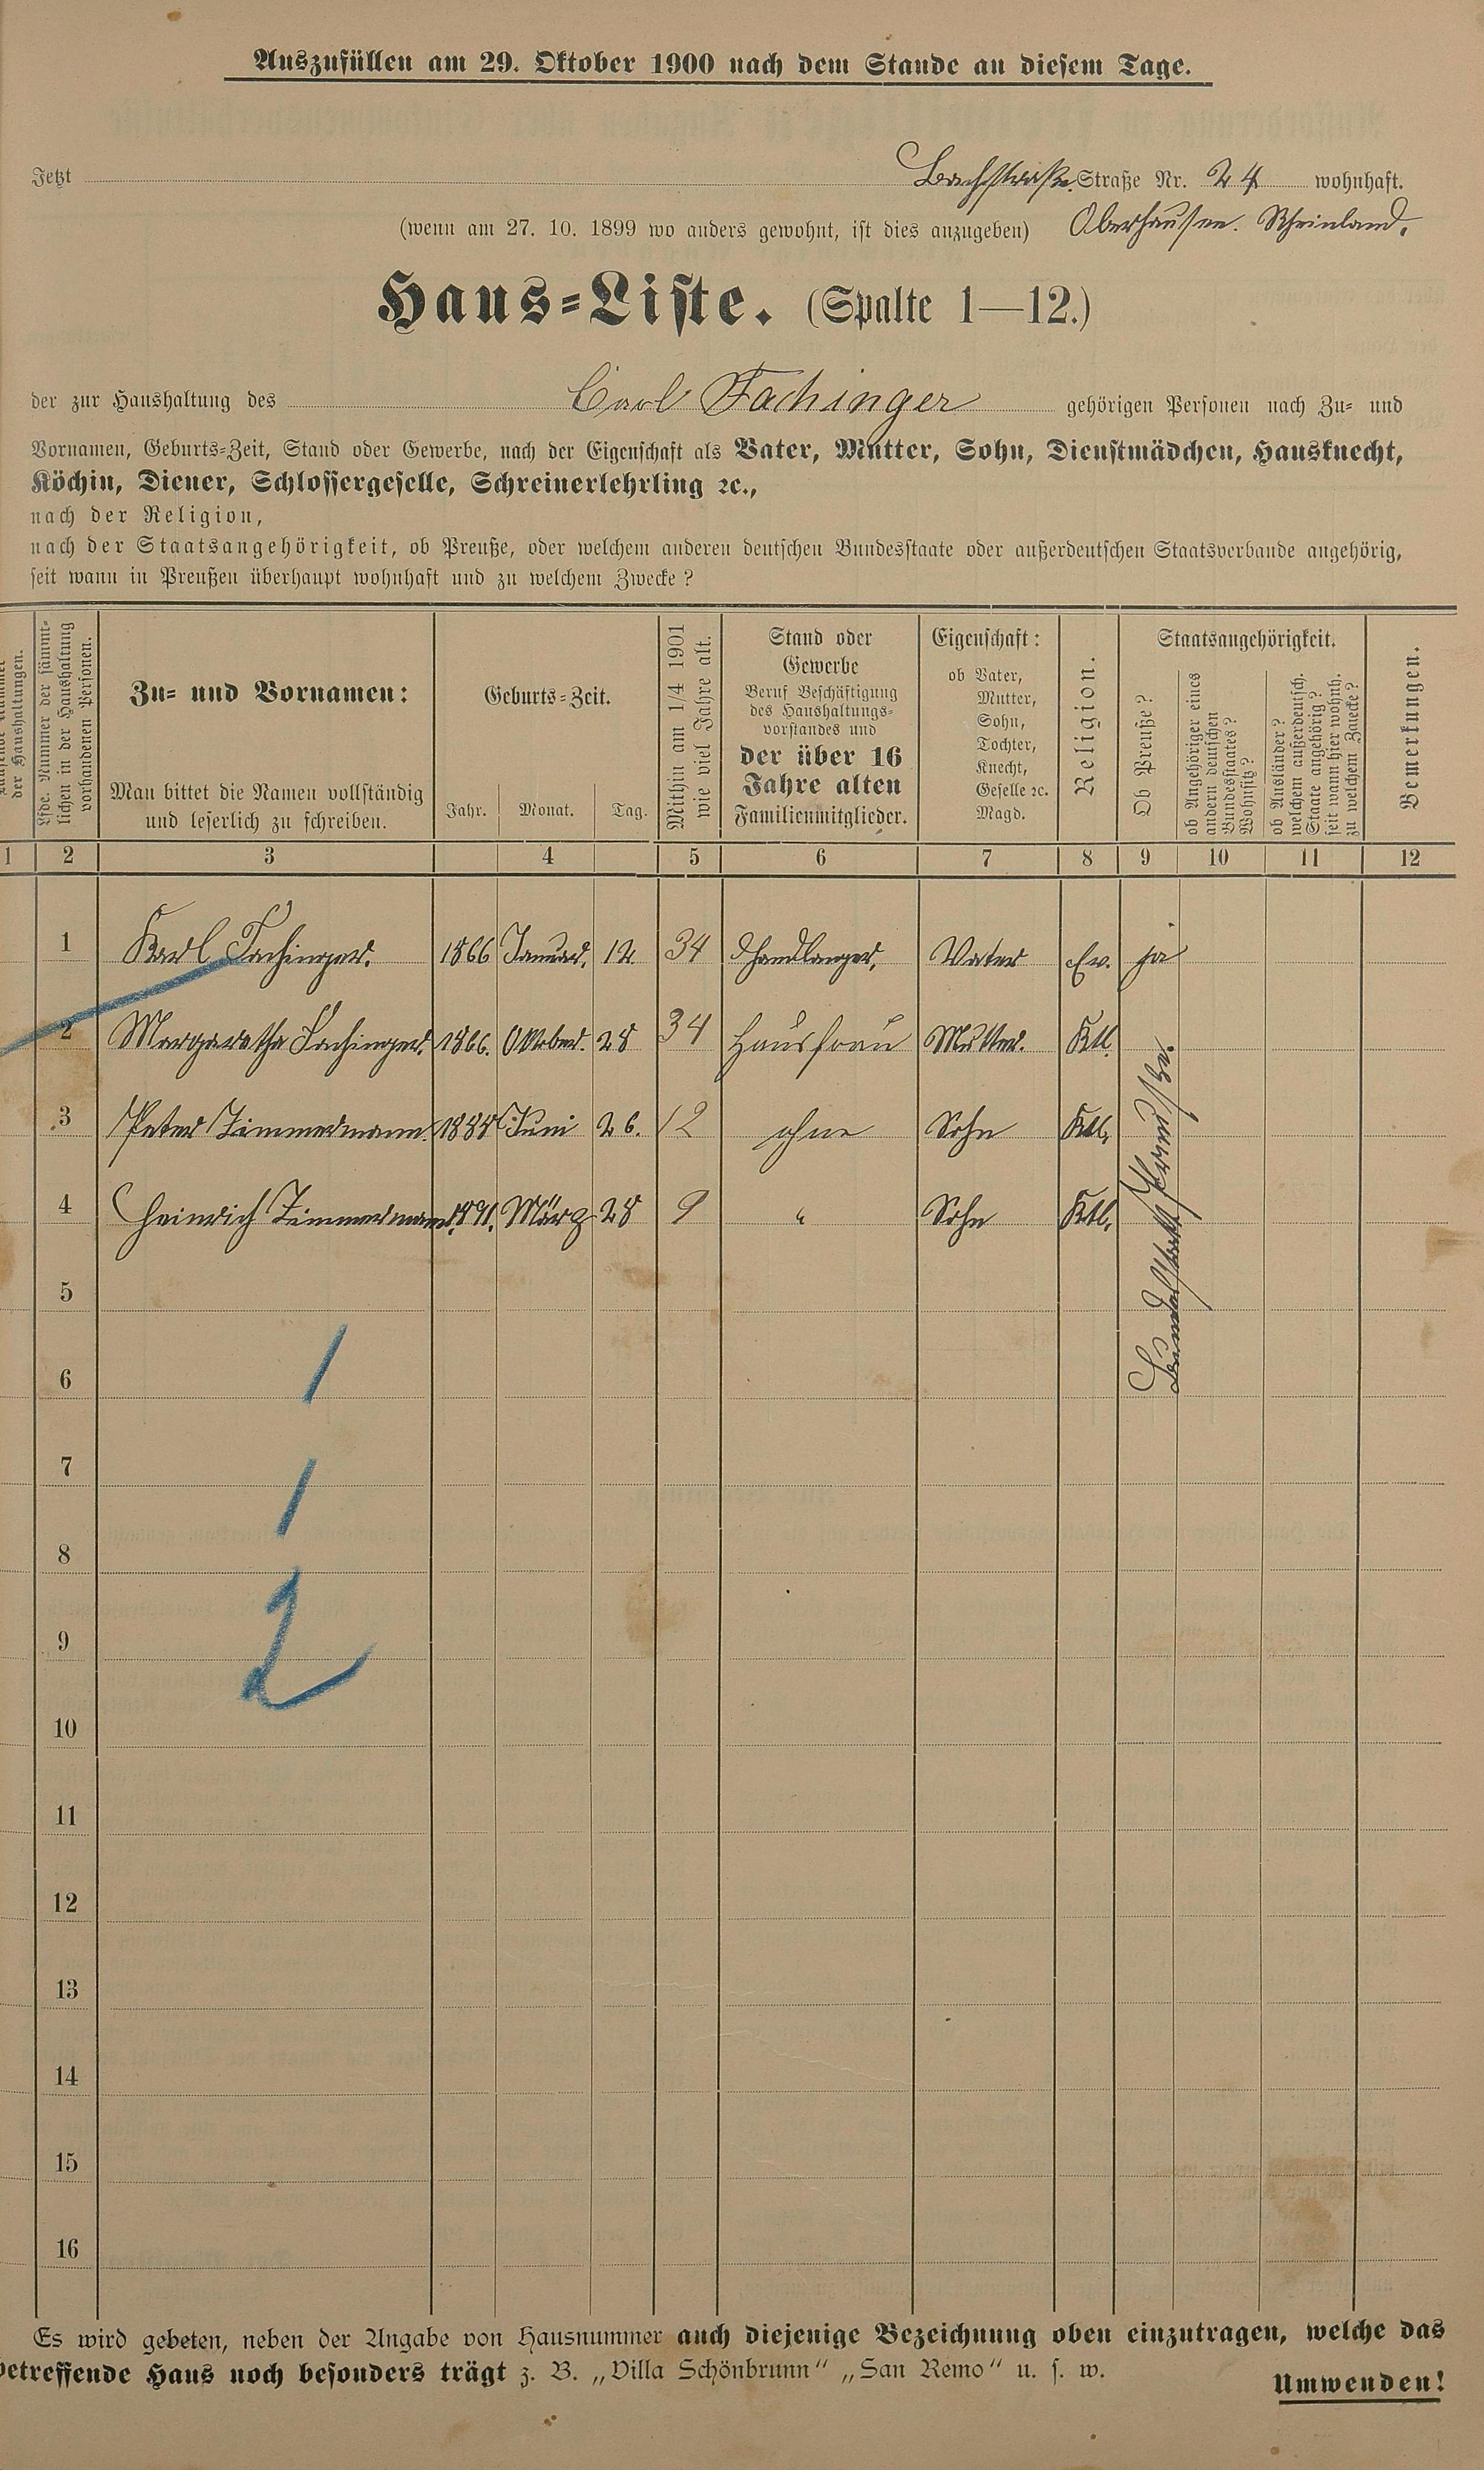 Auszufüllen am 29. Oktober 1900 nach dem Stande an diesem Tage.
Jetzt Bachstraße Straße Nr. 24 wohnhaft.
(wenn am 27. 10. 1899 wo anders gewohnt, ist dies anzugeben) Oberhausen. Rheinland.
Haus-Liste. (Spalte 1—12.)
der zur Haushaltung des Carl Fachinger gehörigen Personen nach Zu- und
Vornamen, Geburts-Zeit, Stand oder Gewerbe, nach der Eigenschaft als Vater, Mutter, Sohn, Dienstmädchen, Hausknecht,
Köchin, Diener, Schlossergeselle, Schreinerlehrling ꝛc.,
nach der Religion,
nach der Staatsangehörigkeit, ob Preuße, oder welchem anderen deutschen Bundesstaate oder außerdeutschen Staatsverbande angehörig,
seit wann in Preußen überhaupt wohnhaft und zu welchem Zwecke?
der Haushaltungen.
Lfde. Nummer der sämmt-
lichen in der Haushaltung
vorhandenen Personen.
Zu- und Vornamen:
Man bittet die Namen vollständig
und leserlich zu schreiben.
Geburts-Zeit.
Jahr. Monat. Tag.
Mithin am 1/4 1901
wie viel Jahre alt.
Stand oder
Gewerbe
Beruf Beschäftigung
des Haushaltungs-
vorstandes und
der über 16
Jahre alten
Familienmitglieder.
Eigenschaft:
ob Vater,
Mutter,
Sohn,
Tochter,
Knecht,
Geselle ꝛc.
Magd.
Religion.
Staatsangehörigkeit.
Ob Preuße?
ob Angehöriger eines
andern deutschen
Bundesstaates?
Wohnsitz?
ob Ausländer?
welchem außerdeutsch.
Staate angehörig?
seit wann hier wohnh.
zu welchem Zwecke?
Bemerkungen.
1 2 3 4 5 6 7 8 9 10 11 12
1 Karl Fachinger. 1866 Januar. 12. 34 Handlanger, Vater Ev. ja
2 Margaretha Fachinger. 1866. Oktober. 28 34 Hausfrau Mutter. Ktl.
3 Peter Zimmermann. 1888 Juni 26. 12 ohne Sohn Ktl.
4 Heinrich Zimmermann. 1891. März 28 9 " Sohn Ktl.
Bundesstatt Preußen.
5
6
1
7
1
8
2
9
10
11
12
13
14
15
16
Es wird gebeten, neben der Angabe von Hausnummer auch diejenige Bezeichnung oben einzutragen, welche das
betreffende Haus noch besonders trägt z. B. „Villa Schönbrunn" „San Remo" u. s. w.
Umwenden!